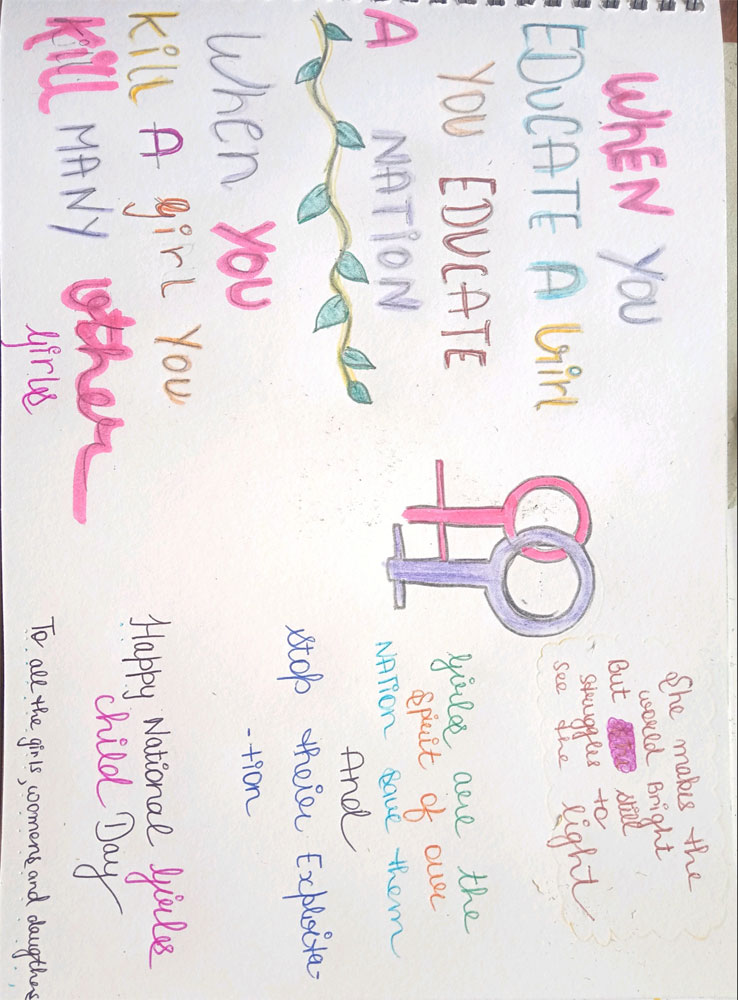 WhEN YOU
EDUCATE A Girl
YOU EDUCATE
A NATION
When YOU
Kill A girl YOU
Kill MANY other
girls
She makes the
world Bright
But still
struggles to
see the light
girls are the
spirit of our
NATION save them
And
stop their Exploita-
-tion
Happy National Girls
child Day
To all the girls, womens and daugthers